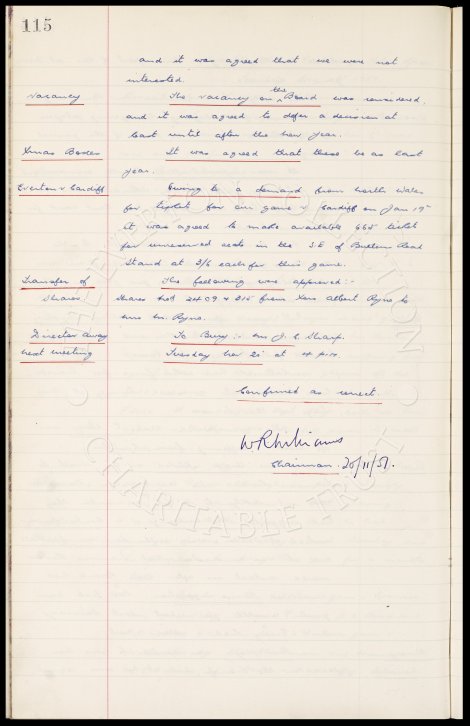 115
and it was agreed that we were not
interested.
Vacancy The vacancy on the Board was considered,
and it was agreed to defer a decision at
least until after the new year.
Xmas Boxes It was agreed that these be as last
year.
Everton v Cardiff Owing to a demand from North Wales
for tickets for our game v Cardiff on Jan 19th
it was agreed to make available 665 tickets
for unreserved seats in the S.E of Bullens Road
Stand at 3/6 each for this game.
Transfer of The following were approved:-
Shares. Shares Nos 2409 & 315 from Albert Ryno to
Mrs M. Ryno.
Director Away To Bury:- Mr J. C. Sharp.
next meeting Tuesday Nov 20 at 4 p.m.
Confirmed as correct.
W R Williams
Chairman 20/11/51.
THE EVERTON COLLECTION
CHARITABLE TRUST